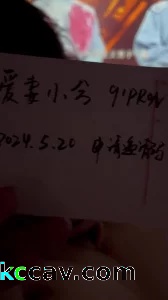 爱妻小兮 91PRON
2024.5.20 申请邀请码
kccav.com